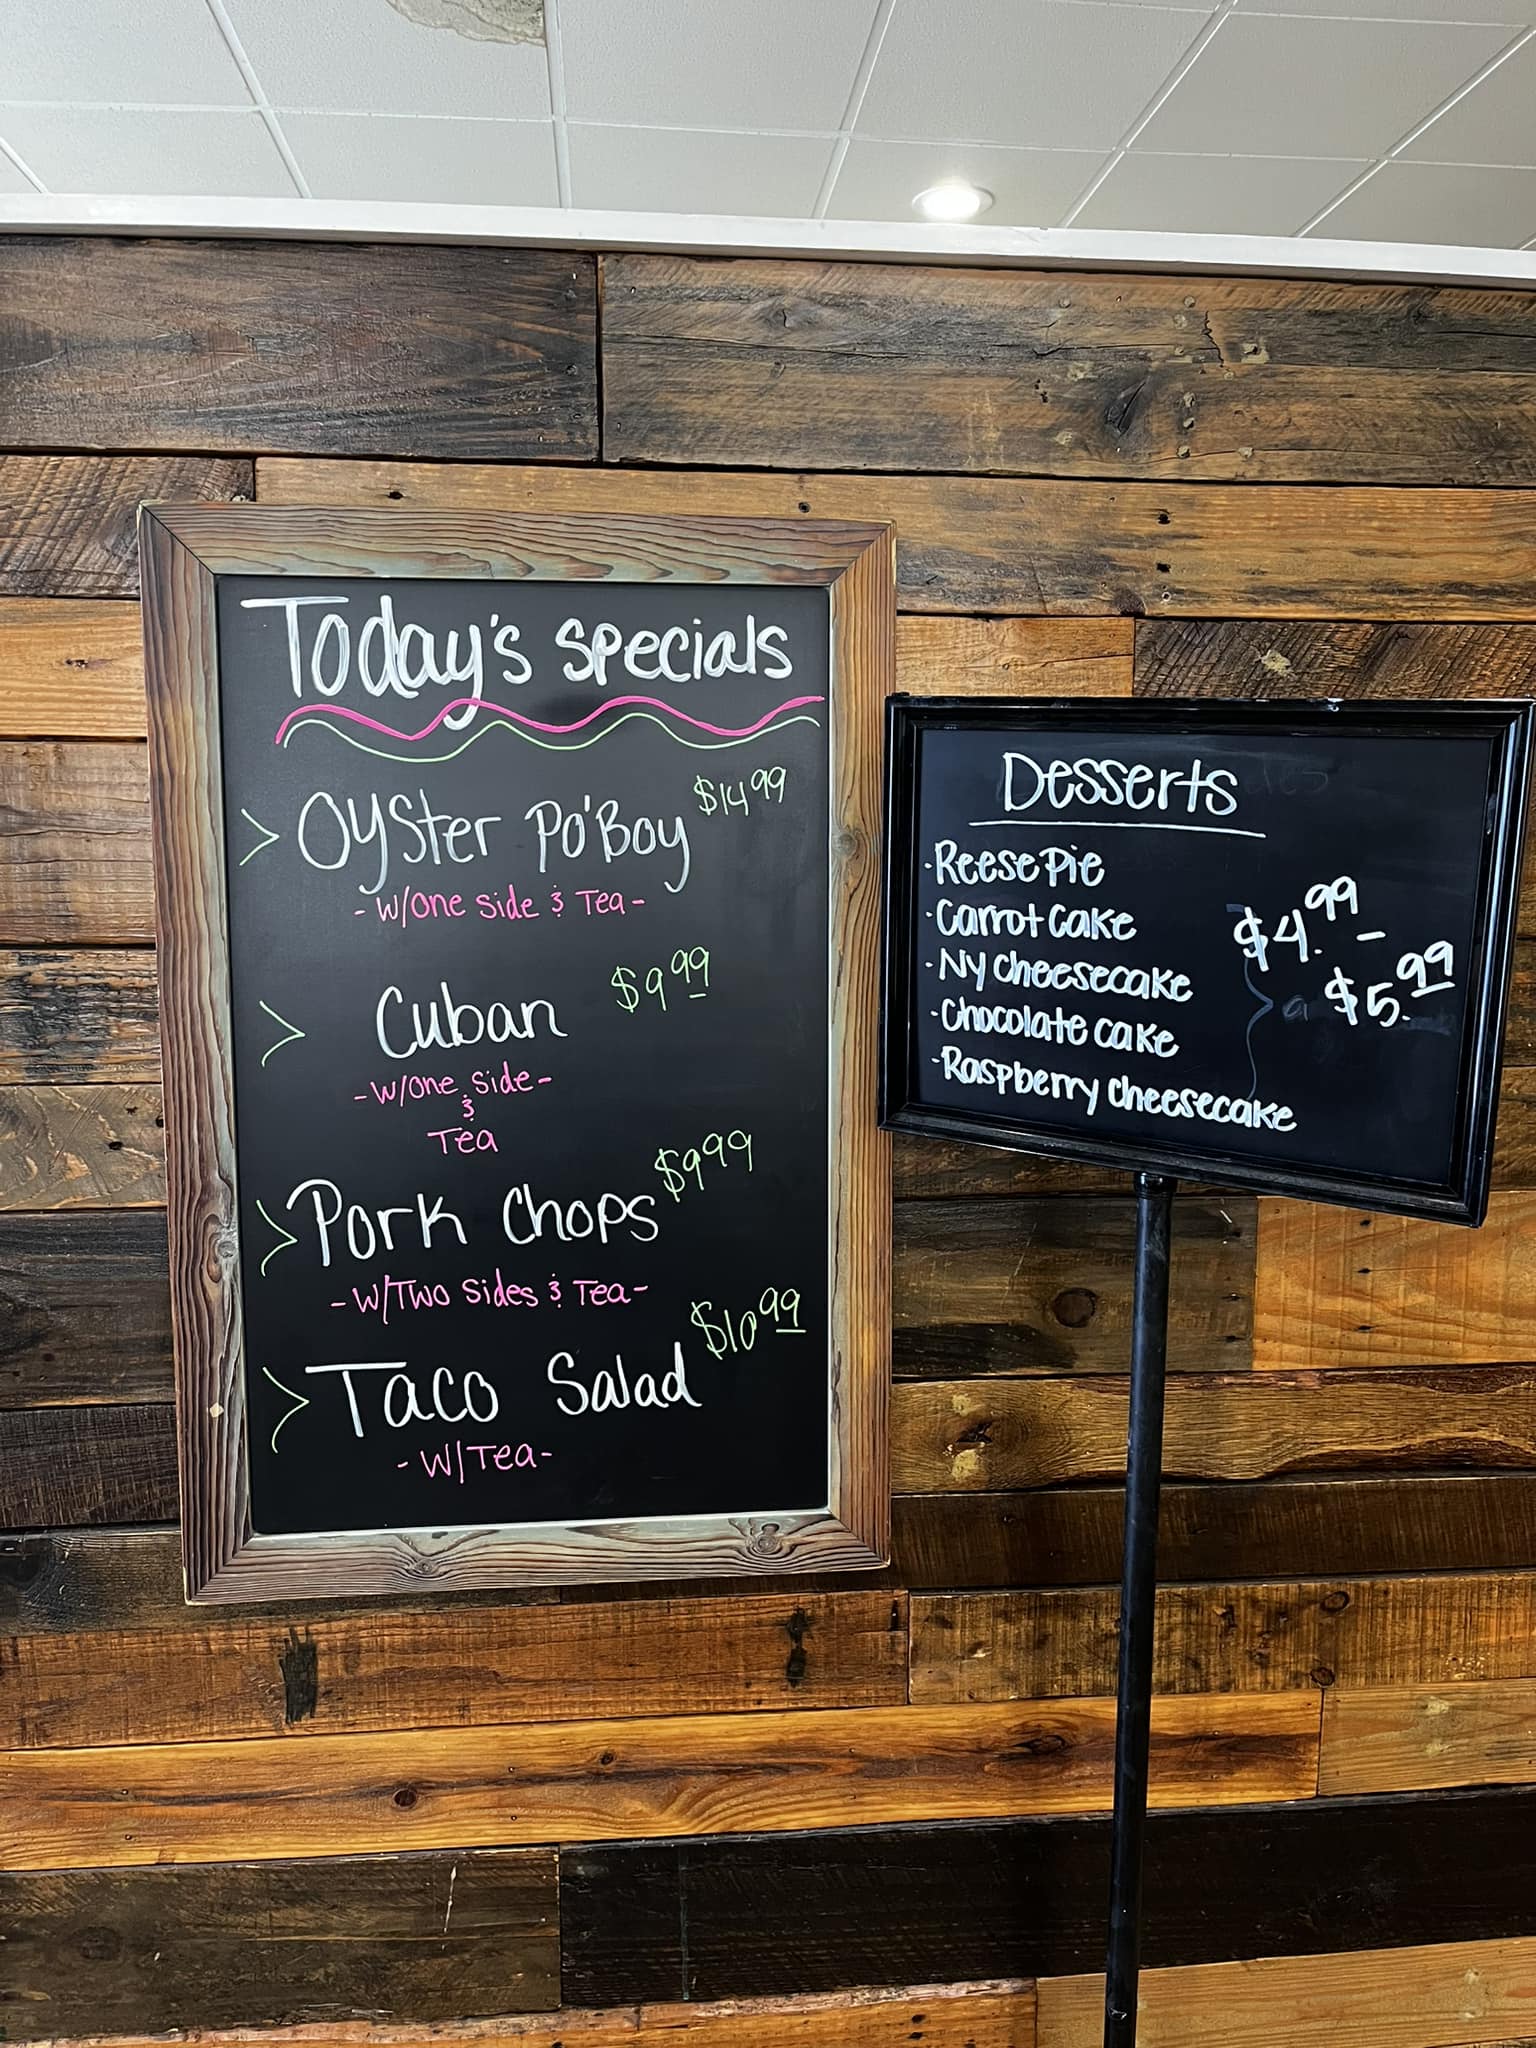 Today's specials
> Oyster Po'Boy $14.99
- w/one side & Tea -
> Cuban $9.99
- w/one side -
&
Tea
> Pork Chops $9.99
- w/Two sides & Tea -
> Taco Salad $10.99
- w/Tea -
Desserts
· Reese Pie
· Carrot cake
· Ny cheesecake
· Chocolate cake
· Raspberry cheesecake
$4.99 -
$5.99